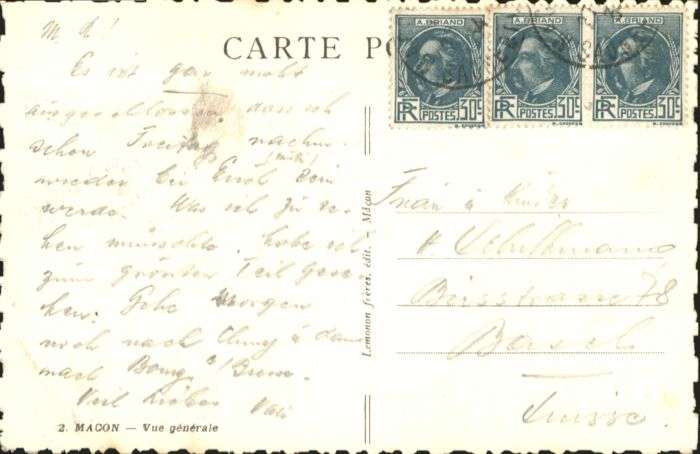 CARTE PO
A. BRIAND
A. BRIAND
A. BRIAND
RF POSTES 30c
RF POSTES 30c
RF POSTES 30c
M L!
Es ist gar nicht
ausgeschlossen, dass ich
schon Freitag nachm.
wieder bei Euch sein
werde. Was ich zu se-
hen wünschte, habe ich
zum grössten Teil gese-
hen. Gehe morgen
noch nach Cluny & dann
nach Bourg s/ Bresse.
Viel Liebes Vati
Frau & Kinder
Birsstrasse 78
Basel
Suisse.
Lemonon frères, édit. — Mâcon
2. MACON — Vue générale